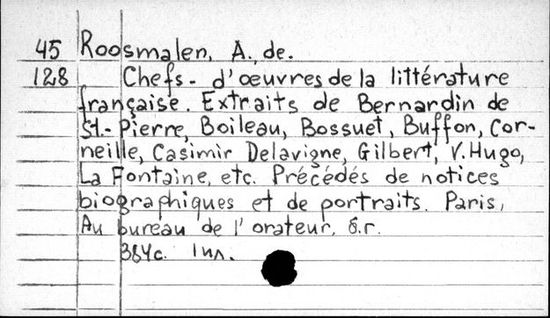 45 Roosmalen, A. de.
128 Chefs-d'œuvres de la littérature
française. Extraits de Bernardin de
St.-Pierre, Boileau, Bossuet, Buffon, Cor-
neille, Casimir Delavigne, Gilbert, V. Hugo,
La Fontaine, etc. Précédés de notices
biographiques et de portraits. Paris,
Au bureau de l'orateur. б.г.
384c. 1 ил.